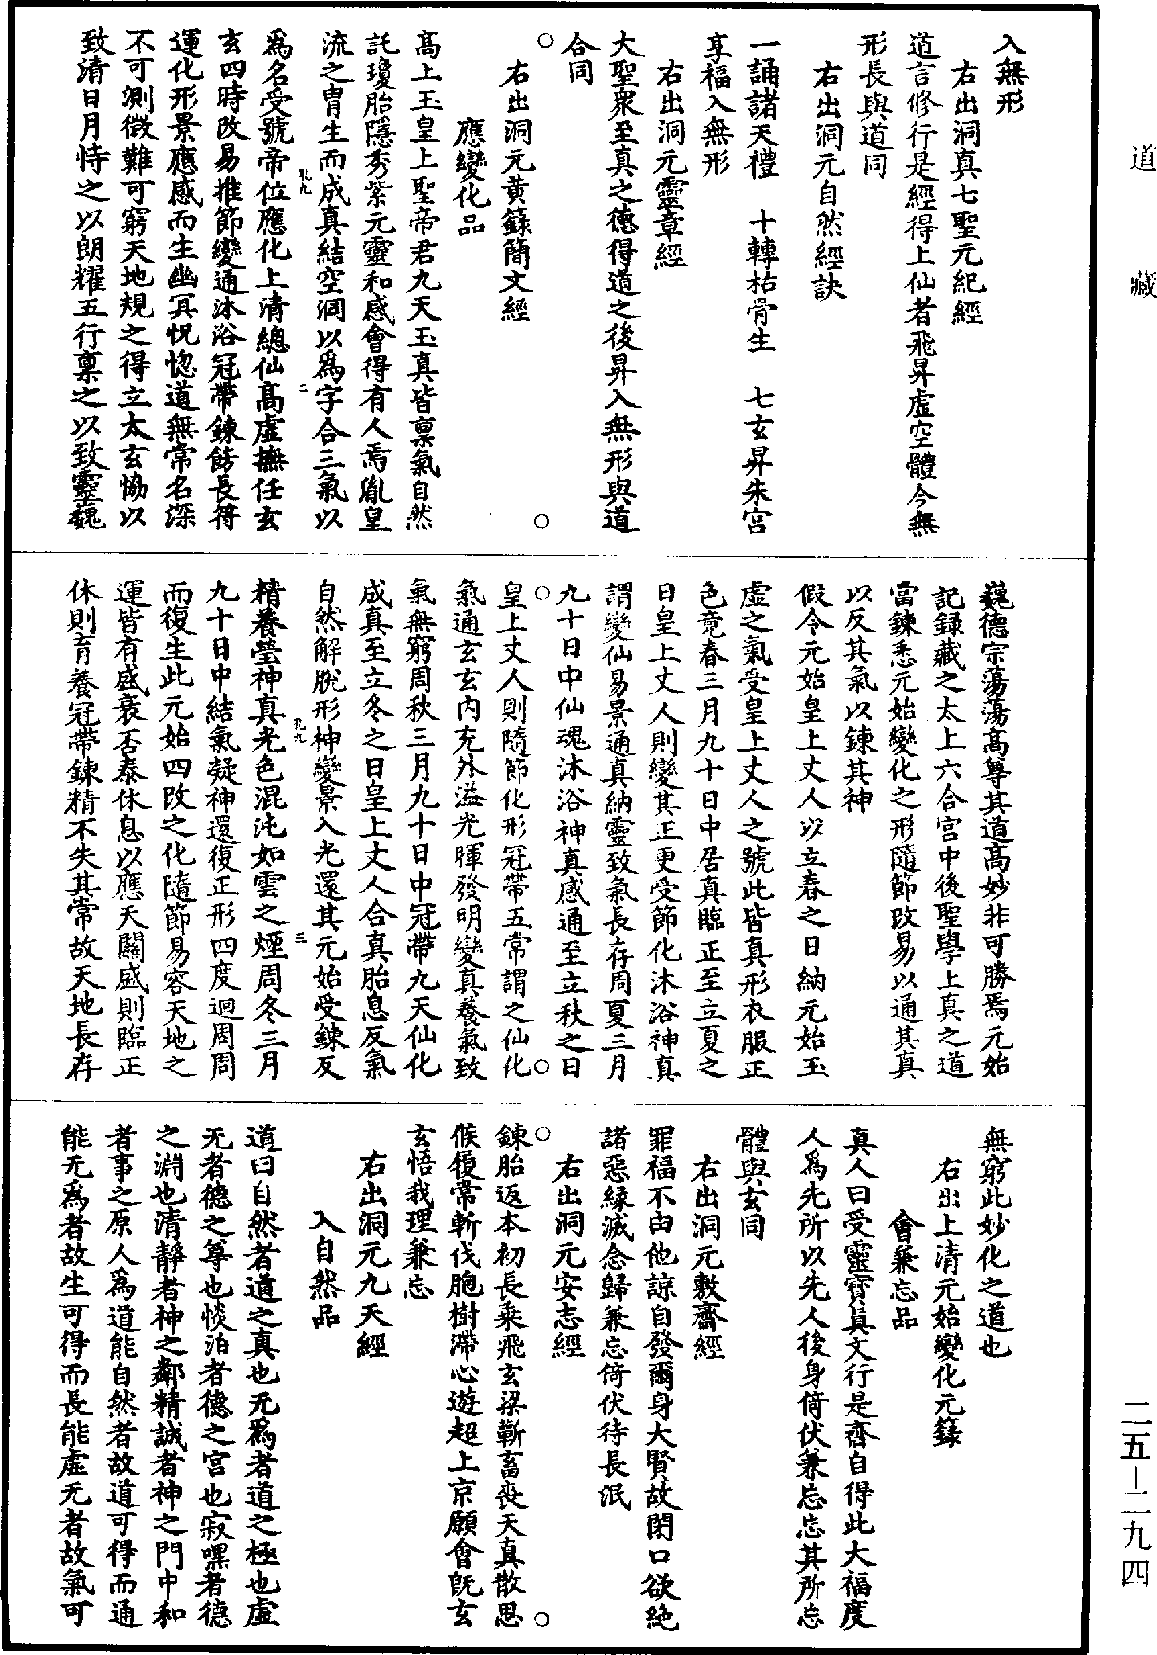 道藏
入無形
右出洞真七聖元紀經
道言修行是經得上仙者飛昇虛空體令無
形長與道同
右出洞元自然經訣
一誦諸天禮 十轉枯骨生 七玄昇朱宮
享福入無形
右出洞元靈章經
大聖眾至真之德得道之後昇入無形與道
合同
右出洞元黃籙簡文經
應變化品
高上玉皇上聖帝君九天玉真皆稟氣自然
託瓊胎隱秀紫元靈和感會得有人焉胤皇
流之胄生而成真結空洞以為字合三氣以
為名受號帝位應化上清總仙高虛撫任玄
玄四時改易推節變通沐浴冠帶鍊飭長存
運化形景應感而生幽冥怳惚道無常名深
不可測微難可窮天地規之得立太玄恊以
致清日月恃之以朗耀五行稟之以致靈巍
巍德宗蕩蕩高尊其道高妙非可勝焉元始
記錄藏之太上六合宮中後聖學上真之道
當鍊悉元始變化之形隨節改易以通其真
以反其氣以鍊其神
假令元始皇上丈人以立春之日納元始玉
虛之氣受皇上丈人之號此皆真形衣服正
色竟春三月九十日中居真臨正至立夏之
日皇上丈人則變其正更受節化沐浴神真
謂變仙易景通真納靈致氣長存周夏三月
九十日中仙魂沐浴神真感通至立秋之日
皇上丈人則隨節化形冠帶五常謂之仙化
氣通玄玄內充外溢光暉發明變真養氣致
氣無窮周秋三月九十日中冠帶九天仙化
成真至立冬之日皇上丈人合真胎息反氣
自然解脫形神變景入光還其元始受鍊反
精養瑩神真光色混沌如雲之煙周冬三月
九十日中結氣凝神還復正形四度迴周周
而復生此元始四改之化隨節易容天地之
運皆有盛衰否泰休息以應天關盛則臨正
休則育養冠帶鍊精不失其常故天地長存
無窮此妙化之道也
右出上清元始變化元籙
會兼忘品
真人曰受靈寶真文行是齋自得此大福度
人為先所以先人後身倚伏兼忘忘其所忘
體與玄同
右出洞元敷齋經
罪福不由他諒自發爾身大賢故閉口欲絕
諸惡緣滅念歸兼忘倚伏待長泯
右出洞元安志經
鍊胎返本初長乘飛玄梁蘄畜喪天真散思
候履常斬伐胞樹滯心遊超上京願會既玄
玄悟我理兼忘
右出洞元九天經
入自然品
道曰自然者道之真也无為者道之極也虛
无者德之尊也惔泊者德之宮也寂嘿者德
之淵也清靜者神之鄰精誠者神之門中和
者事之原人為道能自然者故道可得而通
能无為者故生可得而長能虛无者故氣可
二五-二九四